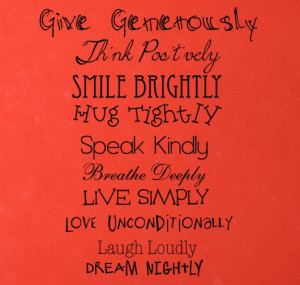 Give Generously
Think Pos't'vely
SMILE BRIGHTLY
Hug Tightly
Speak Kindly
Breathe Deeply
LIVE SIMPLY
LOVE UNCONDITIONALLY
Laugh Loudly
DREAM NIGHTLY